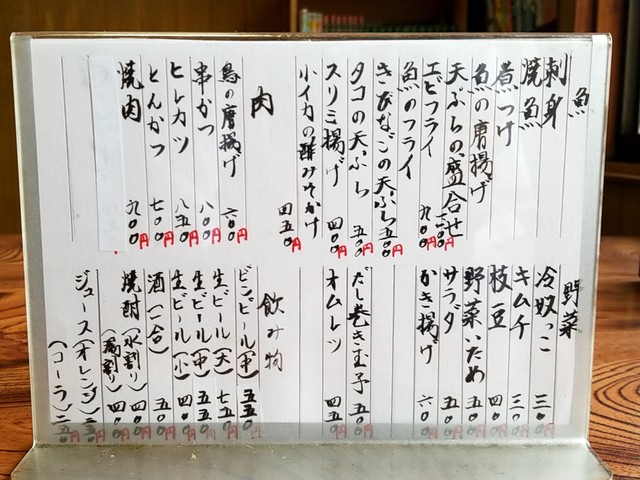 魚
刺身
焼魚
煮つけ
魚の唐揚げ
天ぷらの盛合せ
エビフライ 九〇〇円
魚のフライ
きびなごの天ぷら 五〇〇円
タコの天ぷら 五〇〇円
スリミ揚げ 四〇〇円
小イカの酢みそかけ 四五〇円
肉
鳥の唐揚げ 六〇〇円
串かつ 八〇〇円
ヒレカツ 八五〇円
とんかつ 七〇〇円
焼肉 九〇〇円
野菜
冷奴っこ 三五〇円
キムチ 三〇〇円
枝豆 四〇〇円
野菜いため 五〇〇円
サラダ 五〇〇円
かき揚げ 六〇〇円
だし巻き玉子 五〇〇円
オムレツ 四五〇円
飲み物
ビンビール(中) 五五〇円
生ビール(大) 七五〇円
生ビール(中) 五五〇円
生ビール(小) 四〇〇円
酒(一合) 五〇〇円
焼酎(水割り) 四〇〇円
(湯割り) 四〇〇円
ジュース(オレンジ) 二五〇円
(コーラ) 二五〇円